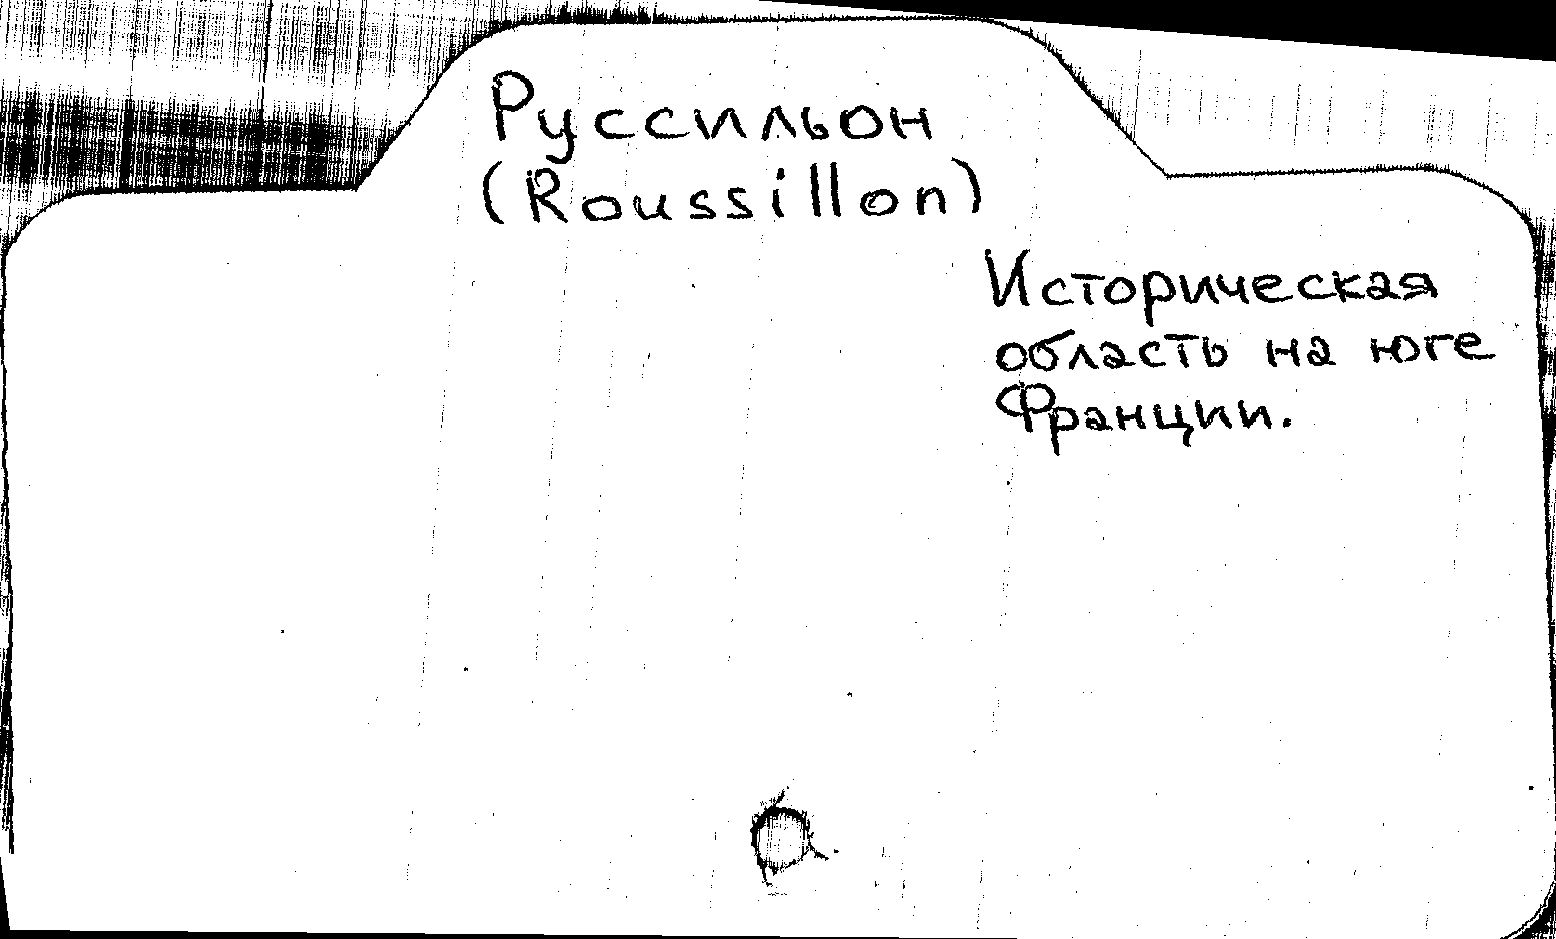 Руссильон
(Roussillon)
Историческая
область на юге
Франции.